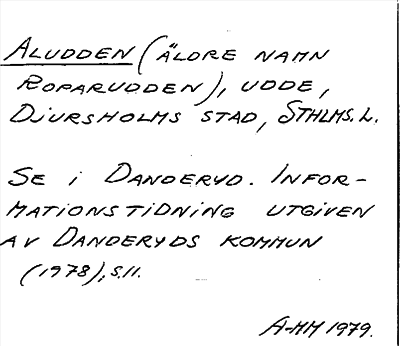 ALUDDEN (ÄLDRE NAMN
ROPARUDDEN), UDDE,
DJURSHOLMS STAD, STHLMS. L.
SE I DANDERYD. INFOR-
MATIONSTIDNING UTGIVEN
AV DANDERYDS KOMMUN
(1978), S. 11.
A-MM 1979.